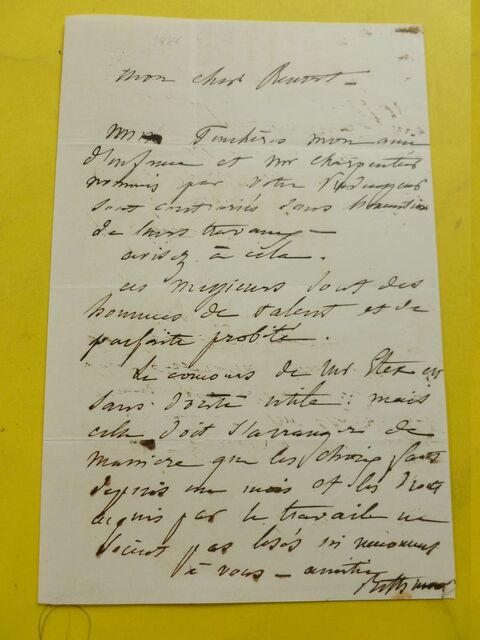 1868
mon cher
MM mon ami
d'enfance et mr Charpentier
nommés par votre
sont contrariés dans
de leurs travaux —
avisez à cela.
ces messieurs sont des
hommes de talent et de
parfaite probité.
Le concours de Mr Etex est
sans doute utile : mais
cela doit s'arranger de
manière que les choix faits
depuis un mois et les droits
acquis par le travail ne
soient pas lésés ni
à vous — amitié